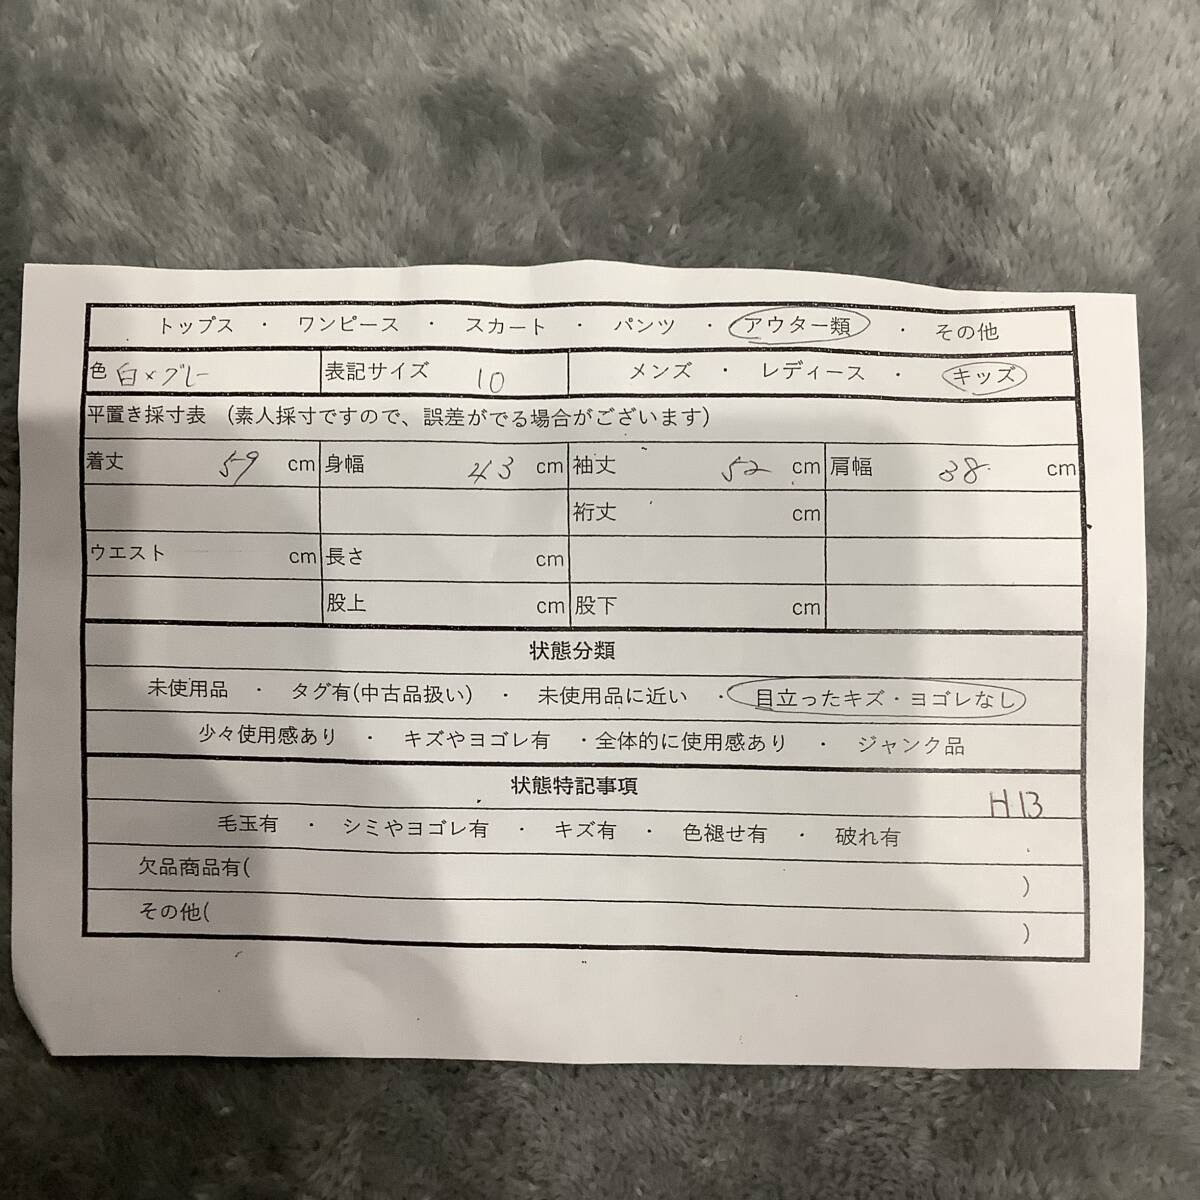 トップス ・ ワンピース ・ スカート ・ パンツ ・ アウター類 ・ その他
色 白×グレー 表記サイズ 10 メンズ ・ レディース ・ キッズ
平置き採寸表 (素人採寸ですので、誤差がでる場合がございます)
着丈 59 cm 身幅 43 cm 袖丈 52 cm 肩幅 38 cm
裄丈 cm
ウエスト cm 長さ cm
股上 cm 股下 cm
状態分類
未使用品 ・ タグ有(中古品扱い) ・ 未使用品に近い ・ 目立ったキズ・ヨゴレなし
少々使用感あり ・ キズやヨゴレ有 ・全体的に使用感あり ・ ジャンク品
状態特記事項
H13
毛玉有 ・ シミやヨゴレ有 ・ キズ有 ・ 色褪せ有 ・ 破れ有
欠品商品有( )
その他( )